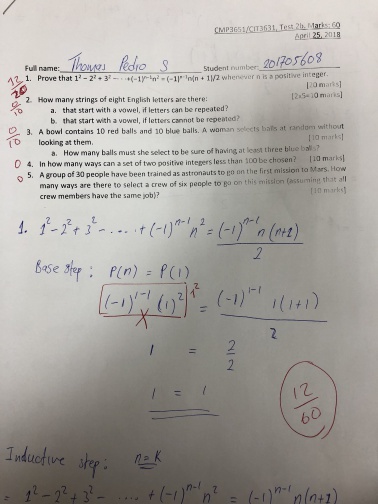 CMP3651/CIT3631, Test 2b, Marks: 60
April 25, 2018
Full name: Thomas Pedro S Student number: 201705608
12/20 1. Prove that 1² – 2² + 3² – ⋯ + (–1)ⁿ⁻¹n² = (–1)ⁿ⁻¹n(n + 1)/2 whenever n is a positive integer.
[20 marks]
0/10 2. How many strings of eight English letters are there: [2x5=10 marks]
a. that start with a vowel, if letters can be repeated?
b. that start with a vowel, if letters cannot be repeated?
0/10 3. A bowl contains 10 red balls and 10 blue balls. A woman selects balls at random without
looking at them. [10 marks]
a. How many balls must she select to be sure of having at least three blue balls?
0 4. In how many ways can a set of two positive integers less than 100 be chosen? [10 marks]
0 5. A group of 30 people have been trained as astronauts to go on the first mission to Mars. How
many ways are there to select a crew of six people to go on this mission (assuming that all
crew members have the same job)? [10 marks]
1. 1² – 2² + 3² – ..... + (-1)ⁿ⁻¹ n² = (-1)ⁿ⁻¹ n(n+1) / 2
Base step : P(n) = P(1)
(-1)¹⁻¹ (1)² 1² = (-1)¹⁻¹ 1(1+1) / 2
X
1 = 2/2
1 = 1
12/60
Inductive step : n = K
= 1² – 2² + 3² – ..... + (-1)ⁿ⁻¹ n² = (-1)ⁿ⁻¹ n(n+1)